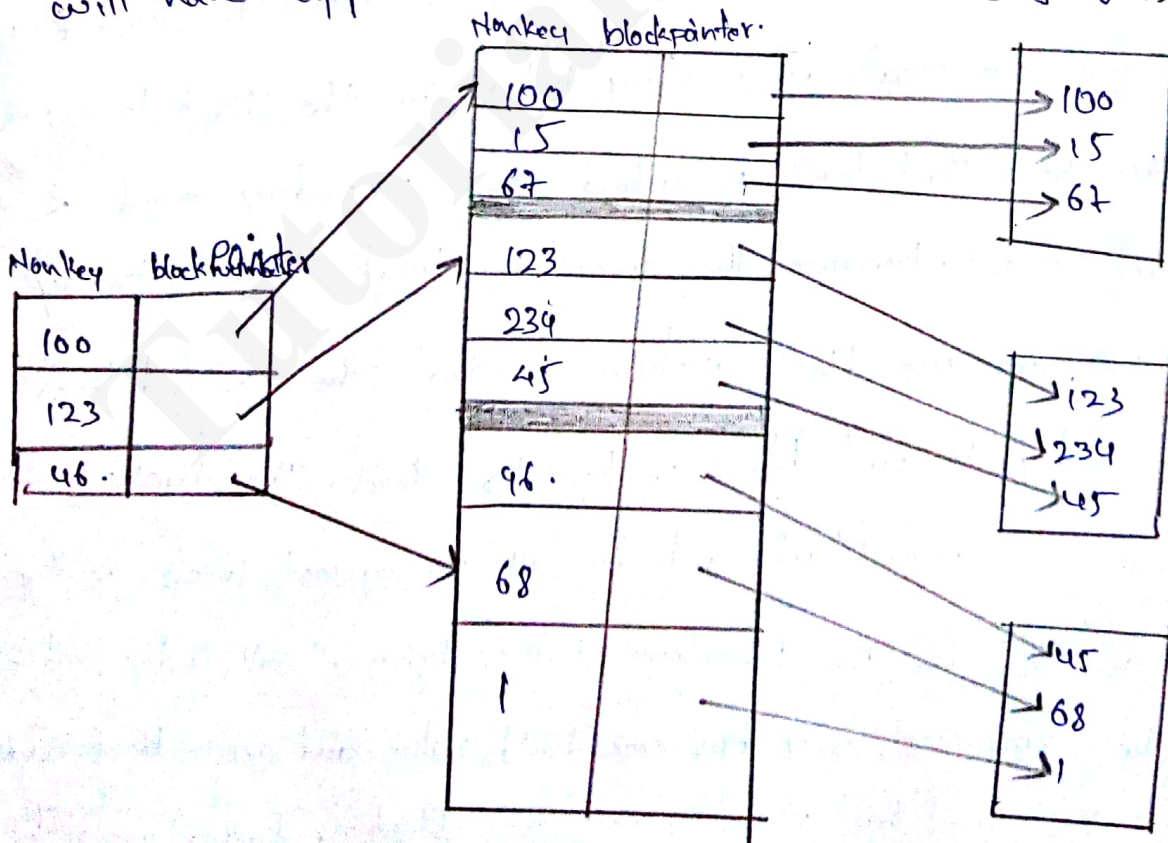 will have
Nonkey blockpointer.
100
15
67
123
234
45
96.
68
1
Nonkey blockpointer
100
123
46.
100
15
67
123
234
45
45
68
1
Tutorial